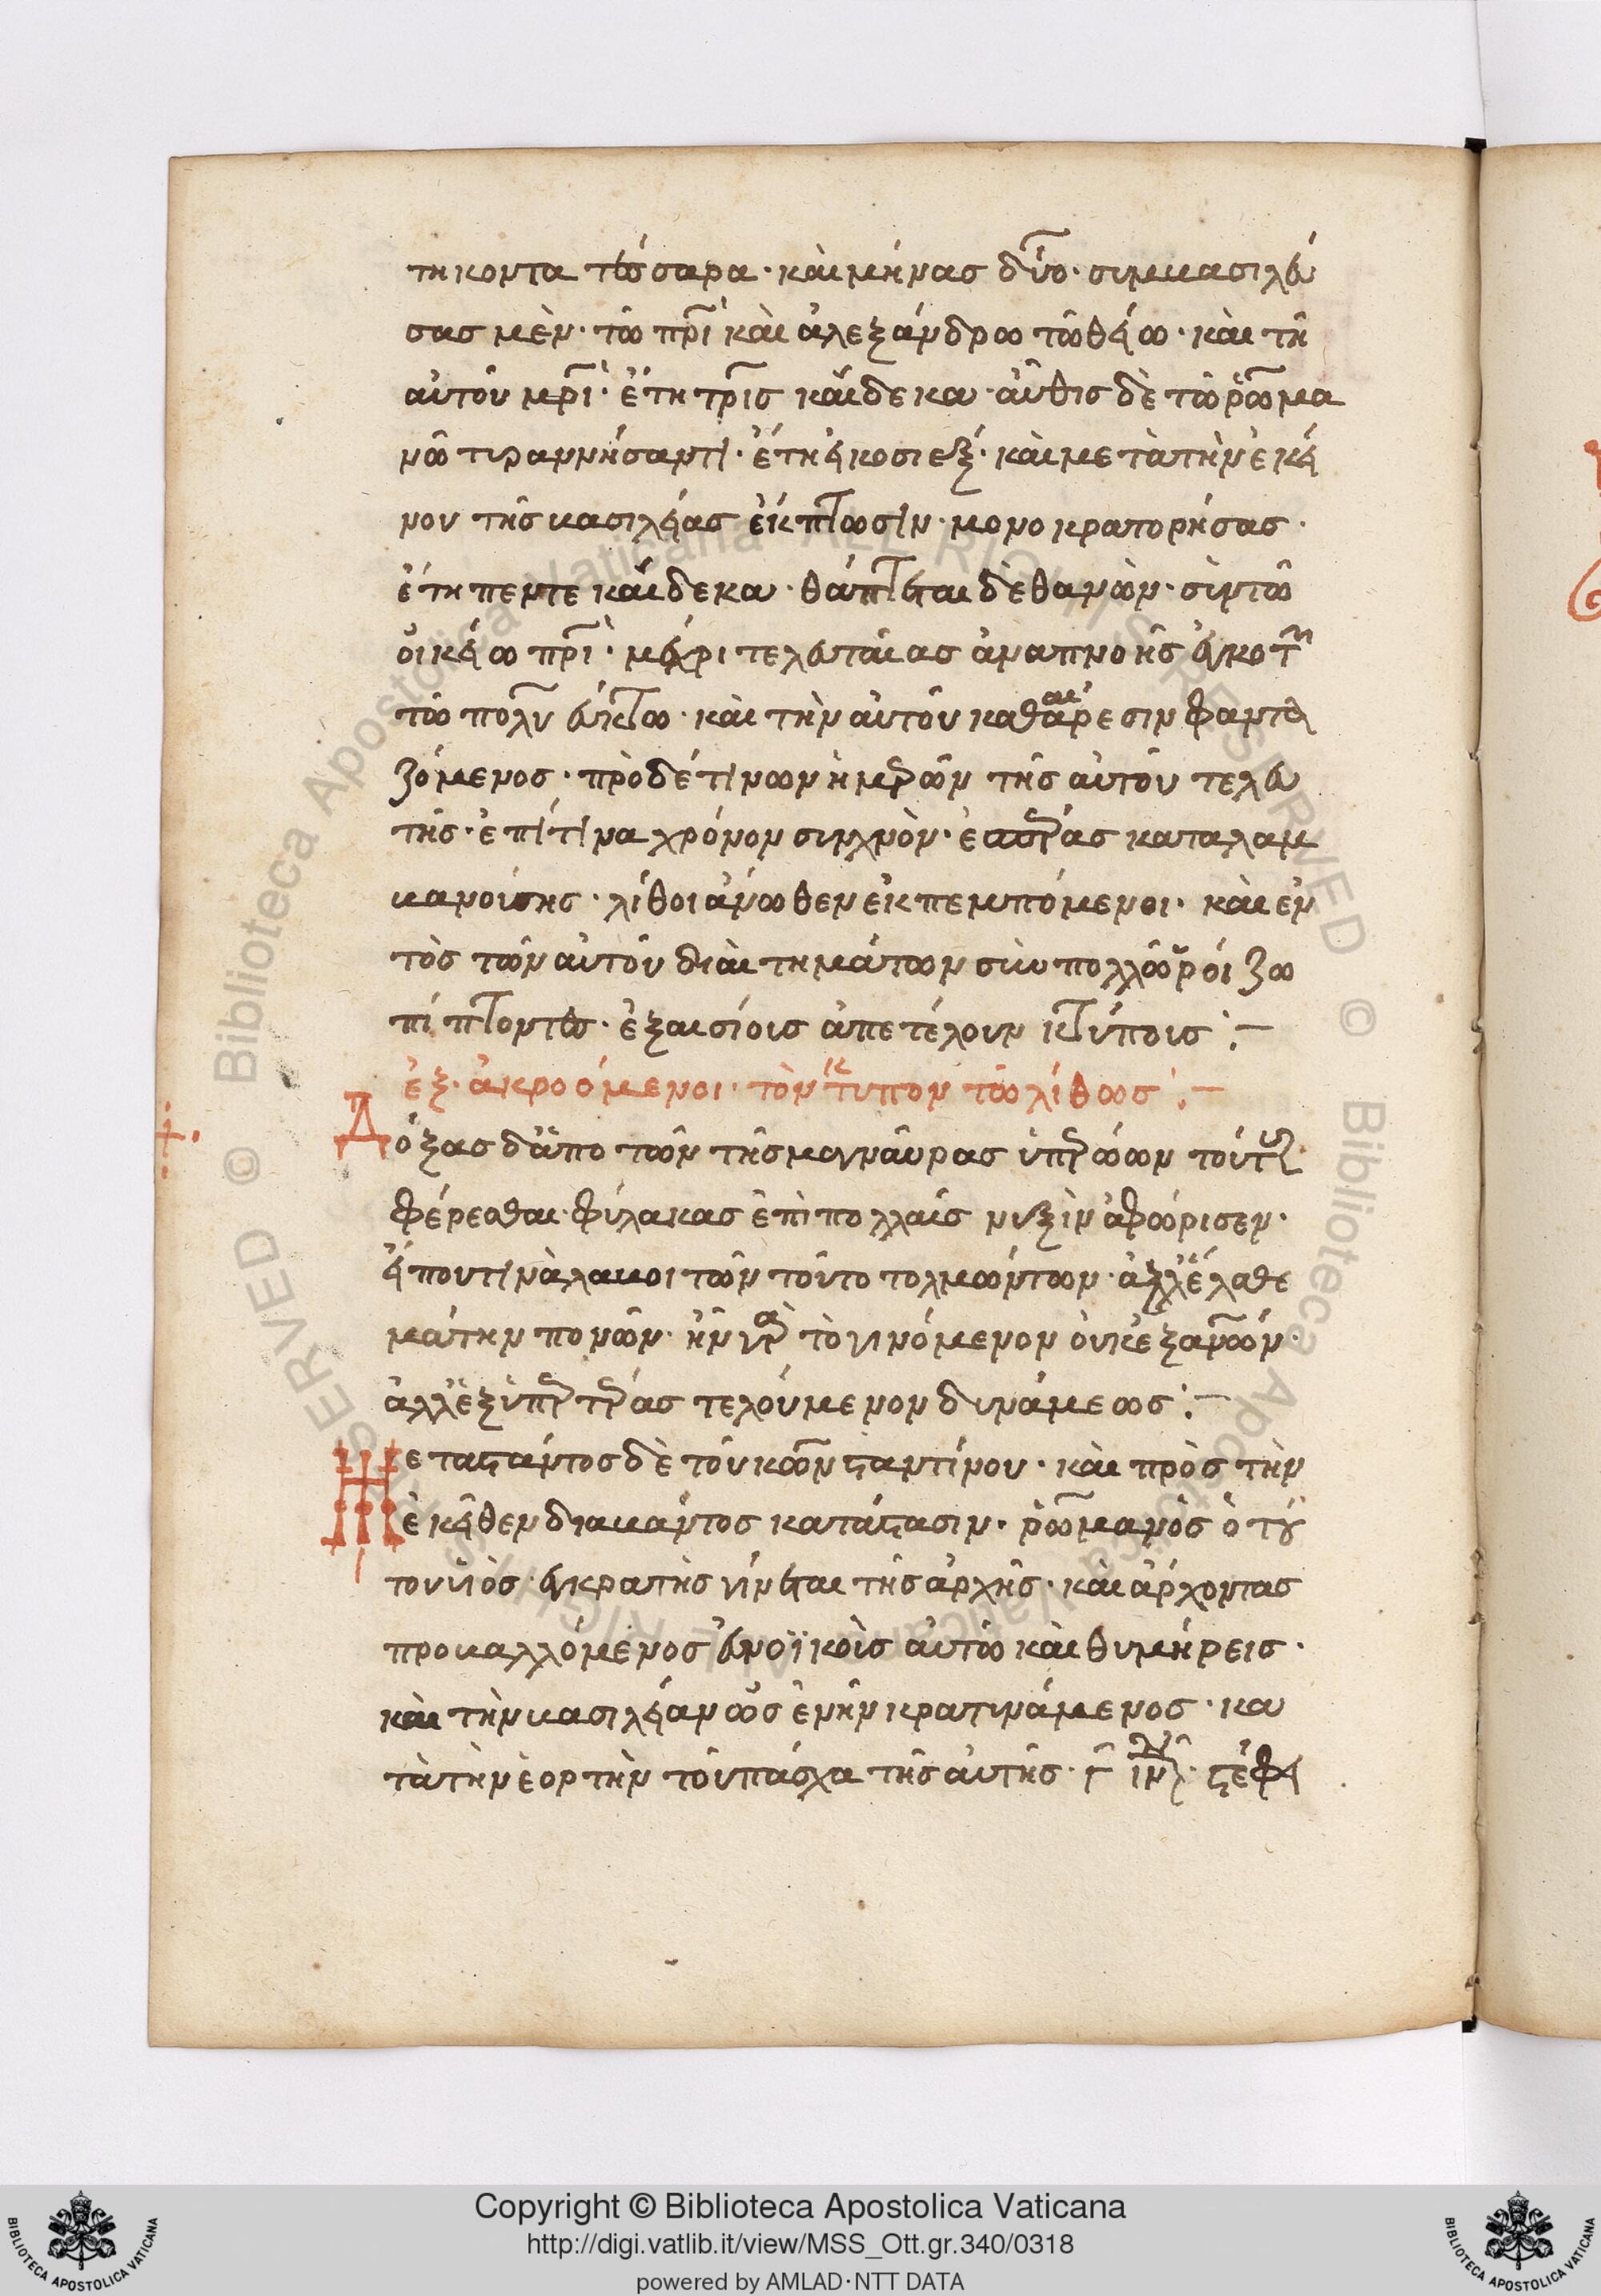 τήκοντα τέσσαρα· καὶ μήνας δύο· συμβασιλεύ
σας μὲν· τῶ πρὶ καὶ ἀλεξάνδρω τῶ θείω· καὶ τῆ
αὐτοῦ μρὶ· ἔτη τρισκαίδεκα· αὖθις δὲ τῶ ῥωμα
νῶ τυραννήσαντι· ἔτη εἴκοσι ἕξ· καὶ μετὰ τὴν ἐκεί
νου τῆς βασιλείας ἔκπτωσιν· μονοκρατορήσας·
ἔτη πεντεκαίδεκα· θάπτεται δὲ θανὼν· σὺν τῶ
οἰκείω πρὶ· μέχρι τελευταίας ἀναπνοῆς
τῶ πολυεύκτω· καὶ τὴν αὐτοῦ καθαίρεσιν φαντα
ζόμενος· πρὸ δέ τινων ἡμερῶν τῆς αὐτοῦ τελευ
τῆς· ἐπί τινα χρόνον συχνὸν· ἑσπέρας καταλαμ
βανούσης· λίθοι ἄνωθεν ἐκπεμπόμενοι· καὶ ἐν
τὸς τῶν αὐτοῦ διαιτημάτων σὺν πολλῶ ῥοίζω
πίπτοντες· ἐξαισίοις ἀπετέλουν κτύποις :–
ἐξ· ἀκροόμενοι· τὸν κτύπον τῶ λίθως :–
Δόξας δ' ἀπὸ τῶν τῆς μαγναύρας ὑπερώων τούτους
φέρεσθαι· φύλακας ἐπὶ πολλαῖς νυξὶν ἀφώρισεν·
εἴπου τινὰ λάβοι τῶν τοῦτο τολμώντων· ἀλλ' ἔλαθε
μάτην πονῶν· ἦν γὰρ τὸ γινόμενον οὐκ ἐξ ἀνῶν·
ἀλλ' ἐξ ὑπερτέρας τελούμενον δυνάμεως :–
Μεταστάντος δὲ τοῦ κωνσταντίνου· καὶ πρὸς τὴν
ἐκεῖθεν διαβάντος κατάστασιν· ῥωμανὸς ὁ τού
του υἱὸς· ἐγκρατὴς γίνεται τῆς ἀρχῆς· καὶ ἄρχοντας
προβαλλόμενος εὐνοϊκοὶς αὐτῶ καὶ θυμήρεις·
καὶ τὴν βασιλείαν ὡς ἐνῆν κρατυνάμενος· κα
τὰ τὴν ἑορτὴν τοῦ πάσχα τῆς αὐτῆς· γ ἰνδ· στέφει
Copyright © Biblioteca Apostolica Vaticana
http://digi.vatlib.it/view/MSS_Ott.gr.340/0318
powered by AMLAD·NTT DATA